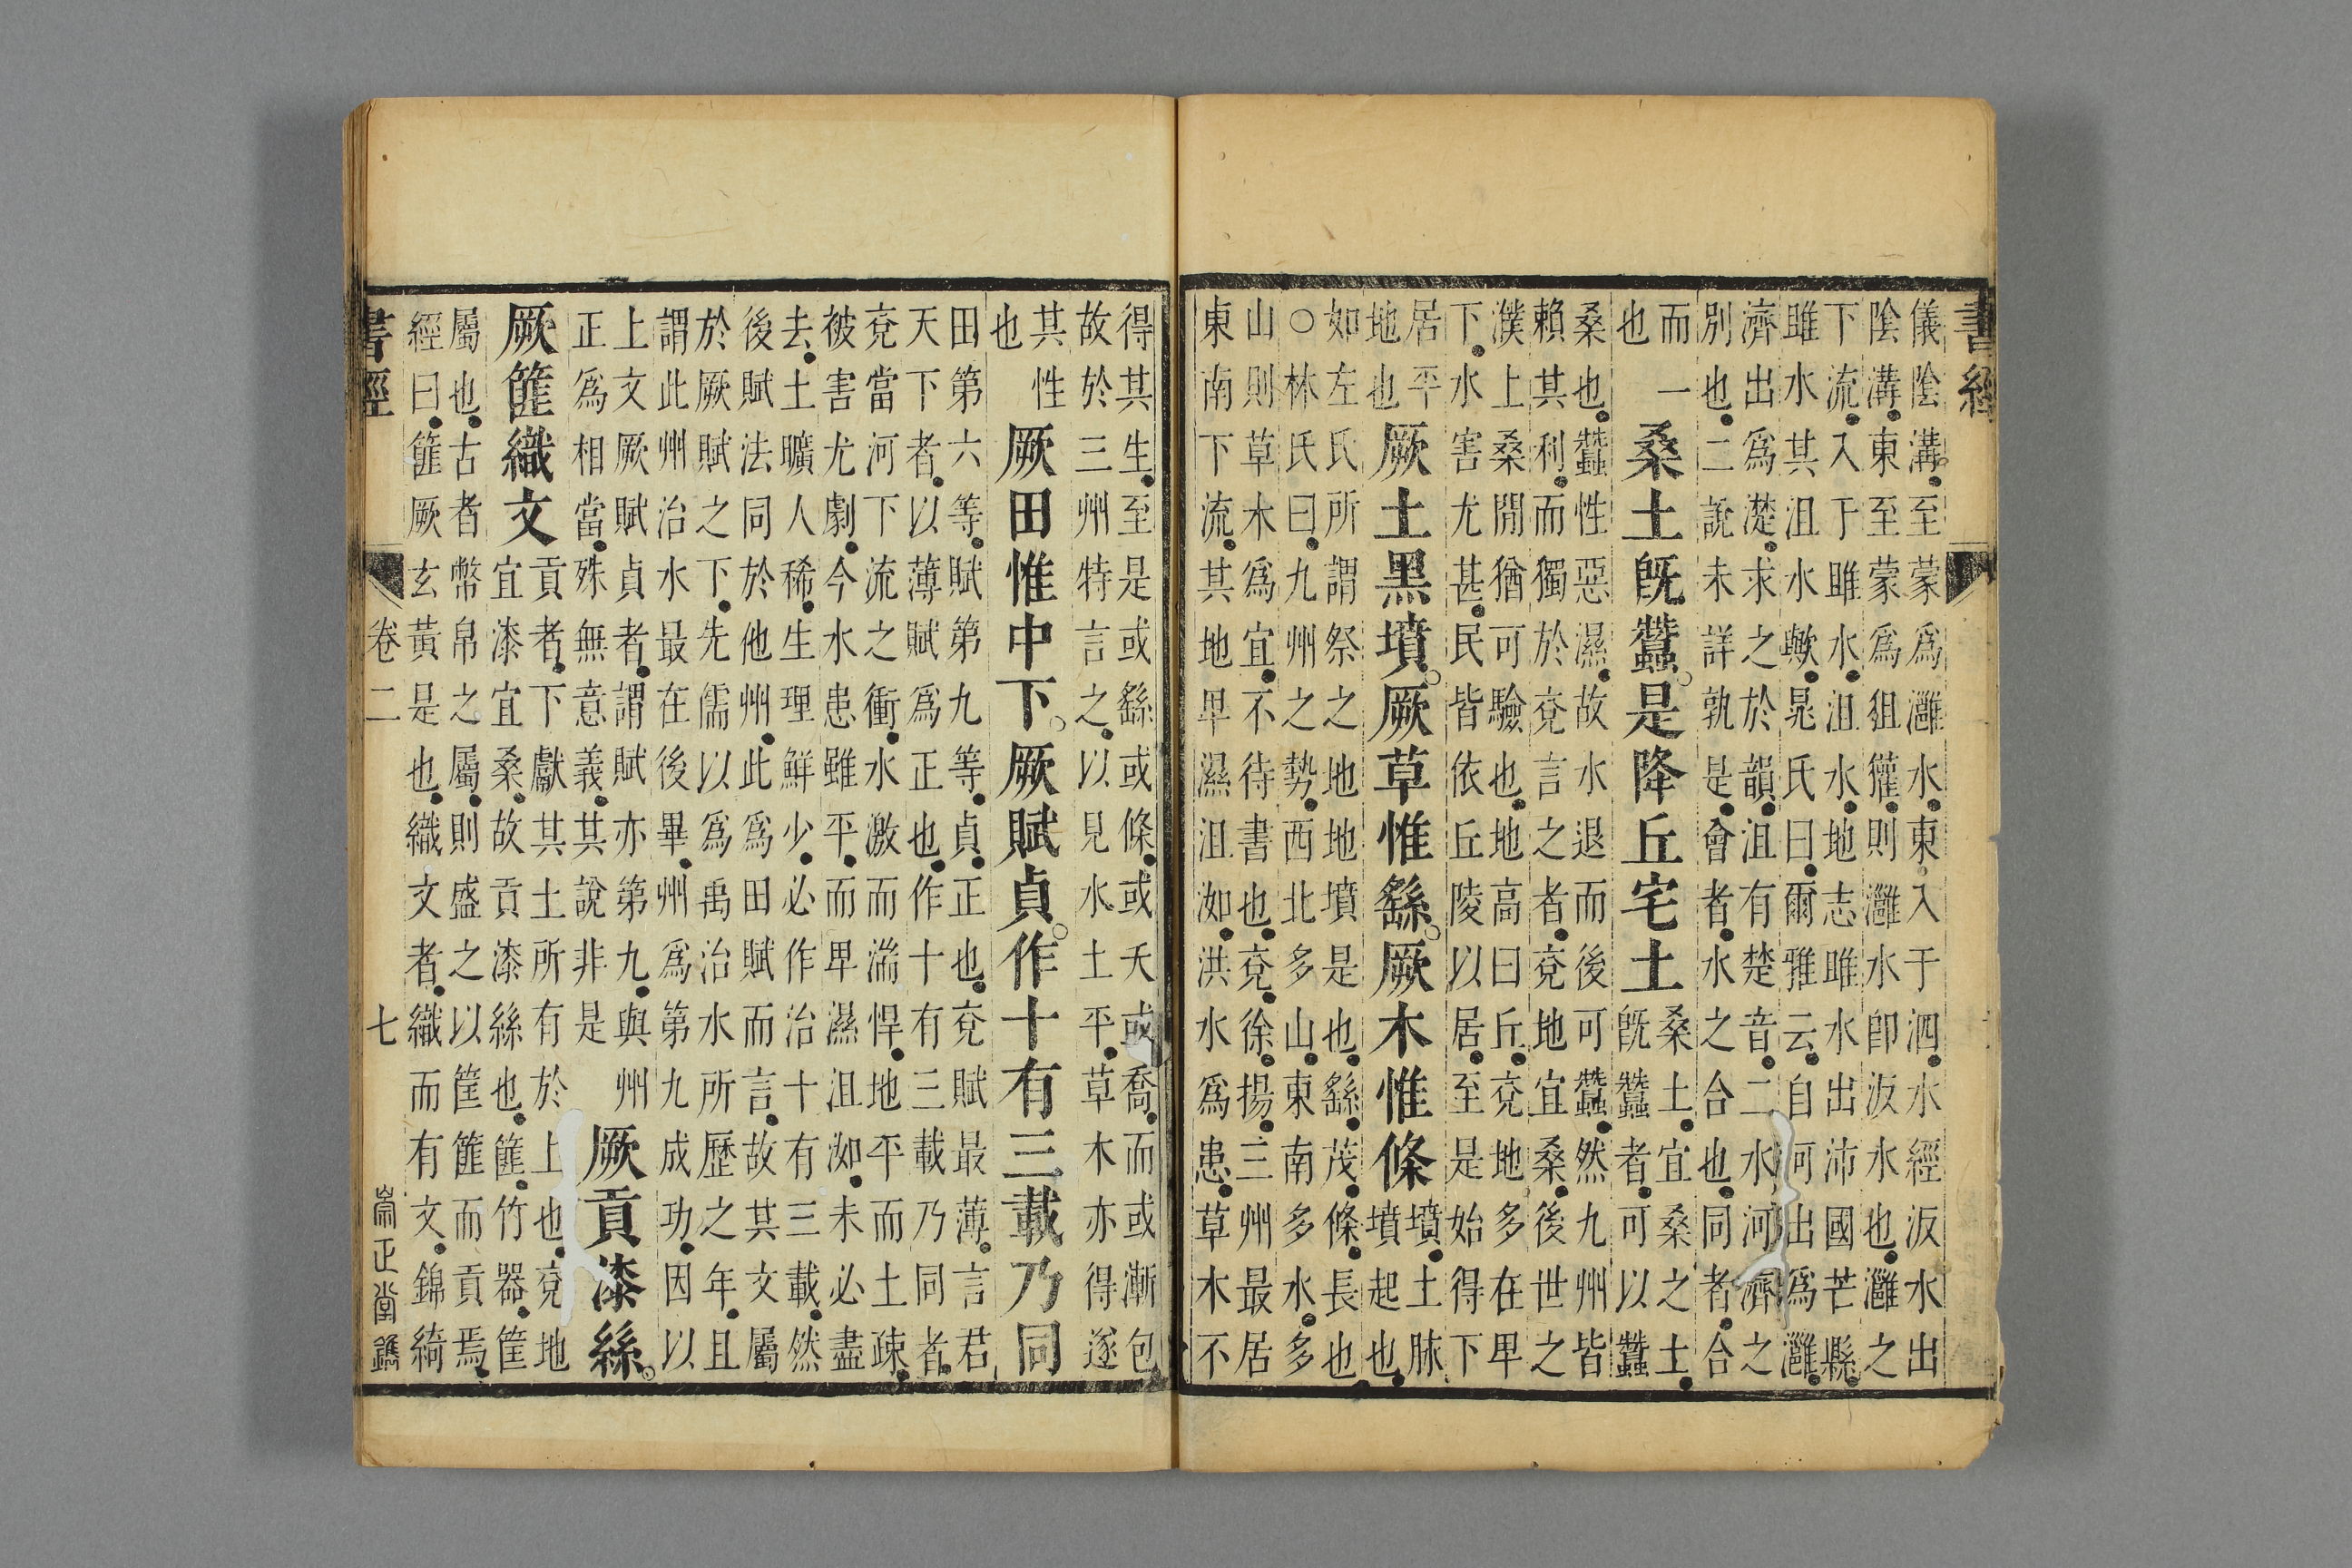 書經
儀陰溝至蒙爲灉水東入于泗水經汳水出
陰溝東至蒙爲狙獾則灉水卽汳水也灉之
下流入于雎水沮水地志雎水出沛國芒縣
雎水其沮水歟晁氏曰爾雅云自河出爲灉
濟出爲濋求之於韻沮有楚音二水河濟之
別也二說未詳孰是會者水之合也同者合
而一
也
桑土旣蠶是降丘宅土
桑土宜桑之土
旣蠶者可以蠶
桑也蠶性惡濕故水退而後可蠶然九州皆
賴其利而獨於兗言之者兗地宜桑後世之
濮上桑閒猶可驗也地高曰丘兗地多在卑
下水害尤甚民皆依丘陵以居至是始得下
居平
地也
厥土黑墳厥草惟繇厥木惟條
墳土脉
墳起也
如左氏所謂祭之地地墳是也繇茂條長也
○林氏曰九州之勢西北多山東南多水多
山則草木爲宜不待書也兗徐揚三州最居
東南下流其地卑濕沮洳洪水爲患草木不
得其生至是或繇或條或夭或喬而或漸包
故於三州特言之以見水土平草木亦得遂
其性
也
厥田惟中下厥賦貞作十有三載乃同
田第六等賦第九等貞正也兗賦最薄言君
天下者以薄賦爲正也作十有三載乃同者
兗當河下流之衝水激而湍悍地平而土疎
被害尤劇今水患雖平而卑濕沮洳未必盡
去土曠人稀生理鮮少必作治十有三載然
後賦法同於他州此爲田賦而言故其文屬
於厥賦之下先儒以爲禹治水所歷之年且
謂此州治水最在後畢州爲第九成功因以
上文厥賦貞者謂賦亦第九與州
正爲相當殊無意義其說非是
厥貢漆絲
厥篚織文
貢者下獻其土所有於上也兗地
宜漆宜桑故貢漆絲也篚竹器筐
屬也古者幣帛之屬則盛之以筐篚而貢焉
經曰篚厥玄黃是也織文者織而有文錦綺
書經 卷二 七 崇正堂鐫